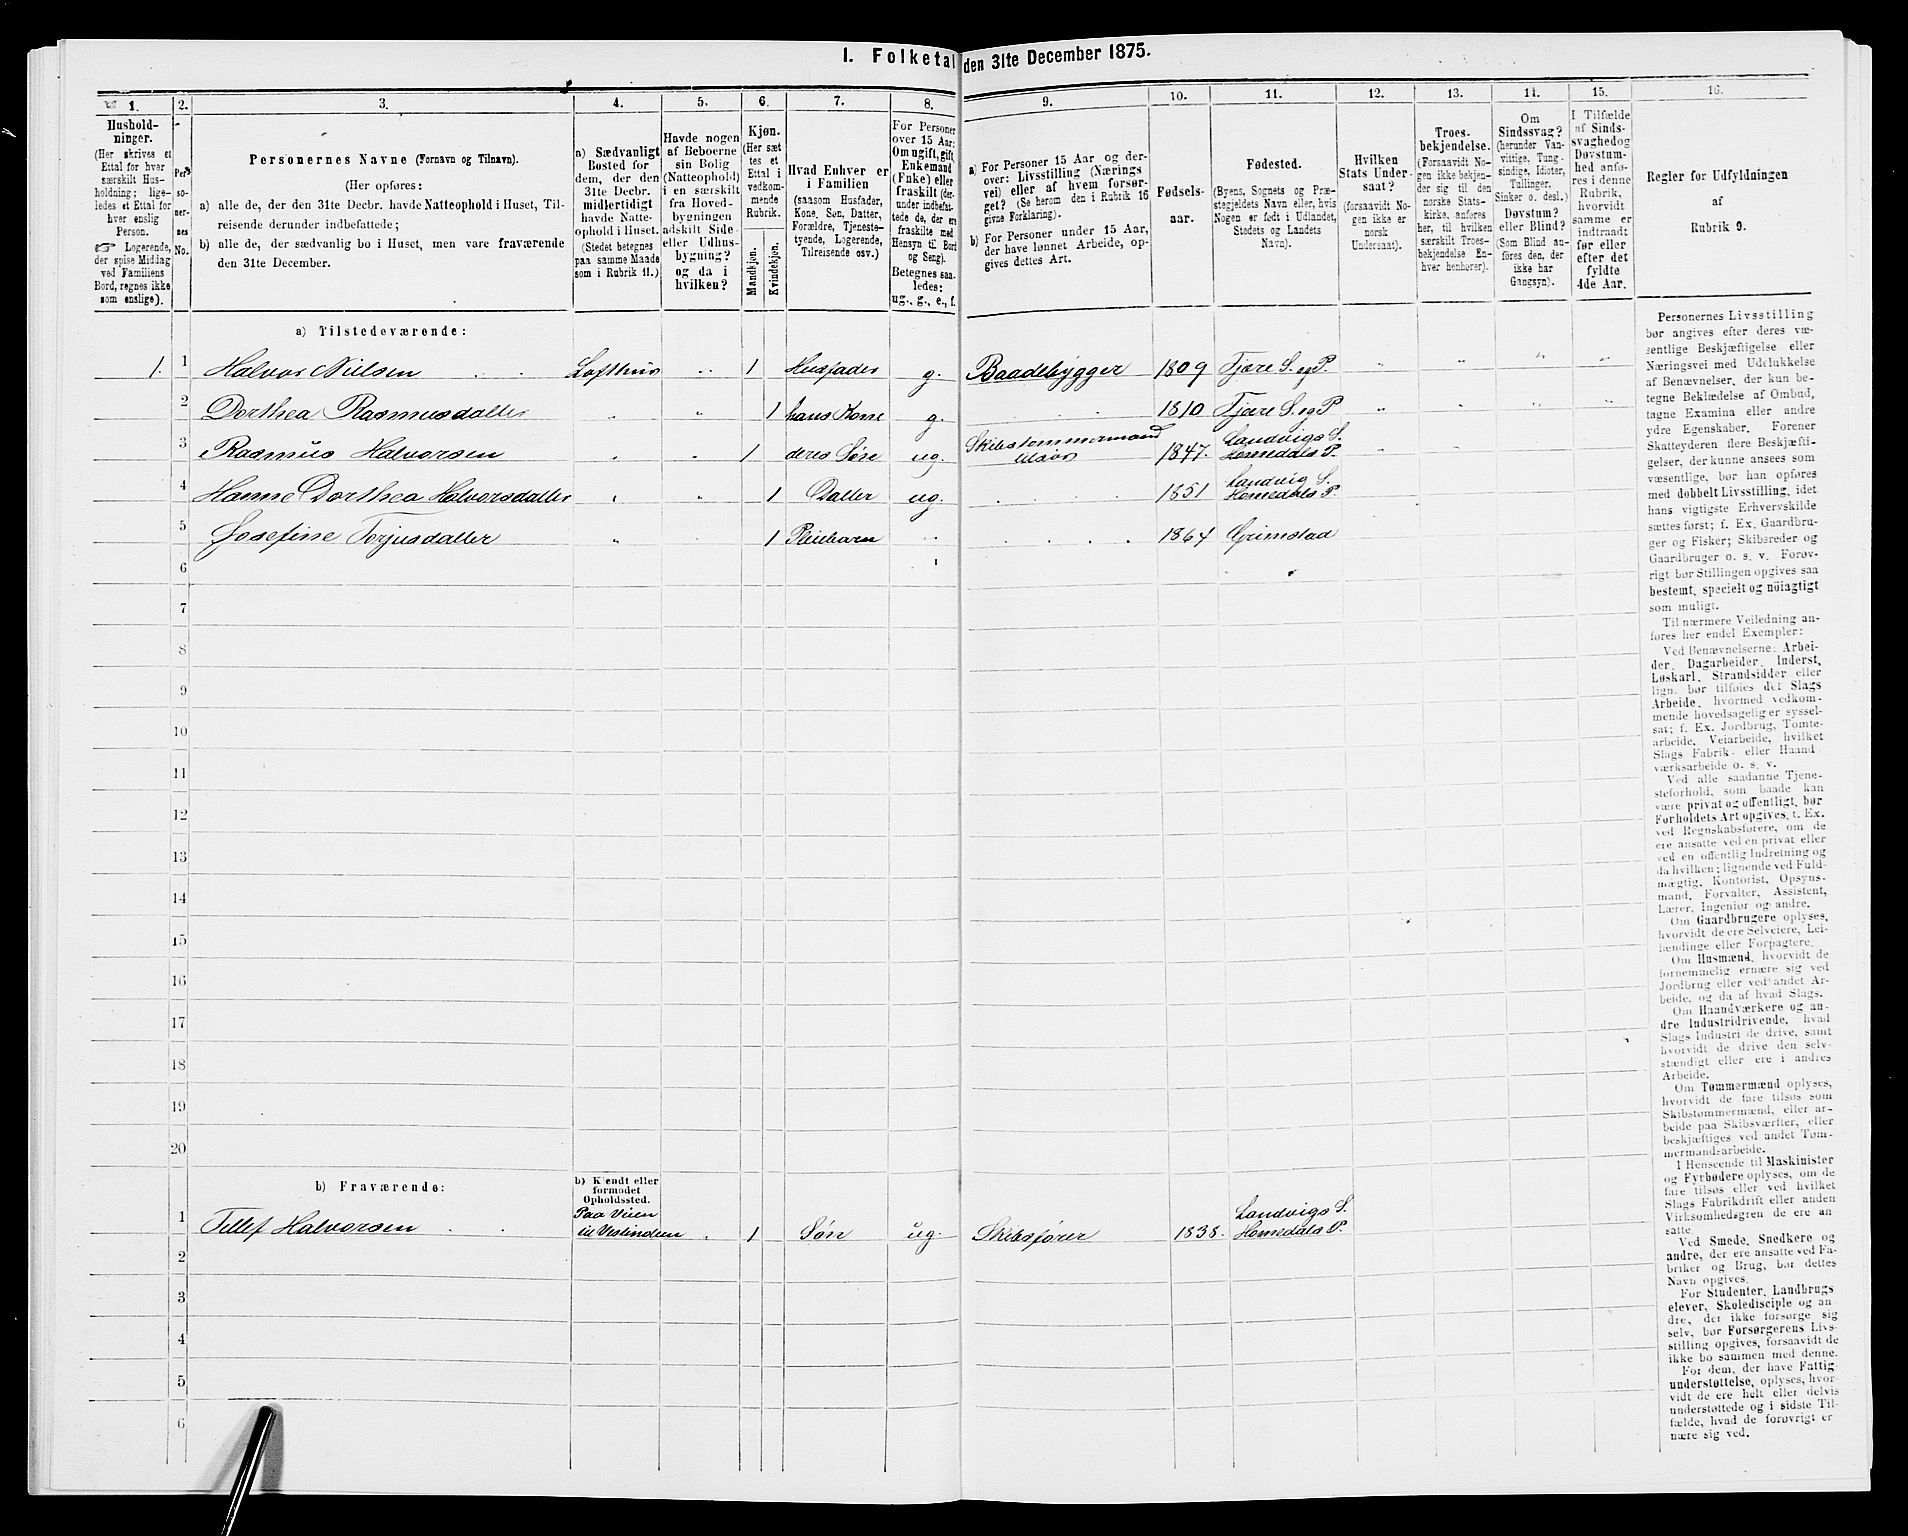 1. Folketal den 31te December 1875.
1.
Hushold-
ninger.
(Her skrives et
Ettal for hver
særskilt Hus-
holdning; lige-
ledes et Ettal for
hver enslig
Person.
☞ Logerende,
der spise Middag
ved Familiens
Bord, regnes ikke
som enslige).
2.
Per-
so-
ner-
nes
No.
3.
Personernes Navne (Fornavn og Tilnavn).
(Her opføres:
a) alle de, der den 31te Decbr. havde Natteophold i Huset, Til-
reisende derunder indbefattede;
b) alle de, der sædvanlig bo i Huset, men vare fraværende
den 31te December.
4.
a) Sædvanligt
Bosted for
dem, der den
31te Decbr.
midlertidigt
havde Natte-
ophold i Huset.
(Stedet betegnes
paa samme Maade
som i Rubrik 11.)
5.
Havde nogen
af Beboerne
sin Bolig
(Natteophold)
i en særskilt
fra Hoved-
bygningen
adskilt Side-
eller Udhus-
bygning?
og da i
hvilken?
6.
Kjøn.
(Her sæt
tes et
Ettal i
vedkom-
mende
Rubrik.
Mandkjøn.
Kvindekjøn.
7.
Hvad Enhver er
i Familien
(saasom Husfader,
Kone, Søn, Datter,
Forældre, Tjeneste-
tyende, Logerende,
Tilreisende osv.)
8.
For Personer
over 15 Aar:
Om ugift, gift,
Enkemand
(Enke) eller
fraskilt (der-
under indbefat-
tede de, der ere
fraskilte med
Hensyn til Bord
og Seng).
Betegnes saa-
ledes:
ug., g., e., f.
9.
a) For Personer 15 Aar og der-
over: Livsstilling (Nærings
vei) eller af hvem forsør-
get? (Se herom den i Rubrik 16
givne Forklaring).
b) For Personer under 15 Aar,
der have lønnet Arbeide, op-
gives dettes Art.
10.
Fødsels-
aar.
11.
Fødested.
(Byens, Sognets og Præ-
stegjeldets Navn eller, hvis
Nogen er født i Udlandet,
Stedets og Landets
Navn).
12.
Hvilken
Stats Under-
saat?
(forsaavidt No-
gen ikke er
norsk
Undersaat).
13.
Troes-
bekjendelse.
(Forsaavidt No-
gen ikke bekjen-
der sig til den
norske Stats-
kirke, anføres
her, til hvilken
særskilt Troes-
bekjendelse En-
hver henhører).
14.
Om
Sindssvag?
(herunder Van-
vittige, Tung-
sindige, Idioter,
Tullinger,
Sinker o. desl.)
Døvstum?
eller Blind?
(Som Blind an-
føres den, der
ikke har
Gangsyn).
15.
I Tilfælde
af Sinds-
svaghed og
Døvstum-
hed anfø-
res i denne
Rubrik,
hvorvidt
samme er
indtraadt
før eller
efter det
fyldte
4de Aar.
16.
Regler for Udfyldningen
af
Rubrik 9.
a) Tilstedeværende:
1. 1 Halvor Nielsen Lofthus " 1 Husfader g. Baadebygger 1809 Fjære S. og P. " " " "
2 Dorthea Rasmusdatter " " 1 hans Kone g. 1810 Fjære S. og P. " " " "
3 Rasmus Halvorsen " " 1 deres Søn ug. Skibstømmermand tilsøs 1847. Landvigs S. Homedals P. "
4 Hanne Dorthea Halvorsdatter " " 1 Datter ug. 1851 Landvig S. Homedals P.
5 Josefine Torjusdatter " 1 Pleiebarn " 1864 Grimstad
6
7
8
9
10
11
12
13
14
15
16
17
18
19
20
b) Fraværende:
b) Kjendt eller
formodet
Opholdssted.
1 Tellef Halvorsen Paa Veien til Vestindien " 1 Søn ug. Skibsfører 1838. Landvigs S. Homedals P.
2
3
4
5
6
Personernes Livsstilling
bør angives efter deres væ-
sentlige Beskjæftigelse eller
Næringsvei med Udelukkelse
af Benævnelser, der kun be-
tegne Beklædelse af Ombud,
tagne Examina eller andre
ydre Egenskaber. Forener
Skatteyderen flere Beskjæfti-
gelser, der kunne ansees som
væsentlige, bør han opføres
med dobbelt Livsstilling, idet
hans vigtigste Erhvervskilde
sættes først; f. Ex. Gaardbru-
ger og Fisker; Skibsreder og
Gaardbruger o. s. v. Forøv-
rigt bør Stillingen opgives saa
bestemt, specielt og nöiagtigt
som muligt.
Til nærmere Veiledning an-
føres her endel Exempler:
Ved Benævnelserne: Arbei-
der, Dagarbeider, Inderst,
Løskarl, Strandsidder eller
lign. bør tilføies det Slags
Arbeide, hvormed vedkom-
mende hovedsagelig er syssel-
sat; f. Ex. Jordbrug, Tomte-
arbeide, Veiarbeide, hvilket
Slags Fabrik- eller Haand-
værksarbeide o. s. v.
Ved alle saadanne Tjene-
steforhold, som baade kan
være privat og offentligt, bør
Forholdets Art opgives, t. Ex.
ved Regnskabsførere, om de
ere ansatte ved en privat eller
ved en offentlig Indretning og
da hvilken; lignende ved Fuld-
mægtig, Kontorist, Opsyns-
mand, Forvalter, Assistent,
Lærer, Ingeniør og andre.
Om Gaardbrugere oplyses,
hvorvidt de ere Selveiere, Lei-
lændinge eller Forpagtere.
Om Husmænd, hvorvidt de
fornemmelig ernære sig ved
Jordbrug eller ved andet Ar-
beide, og da af hvad Slags.
Om Haandværkere og an-
dre Industridrivende, hvad
Slags Industri de drive, samt
hvorvidt de drive den selv-
stændigt eller ere i andres
Arbeide.
Om Tømmermænd oplyses,
hvorvidt de fare tilsøs som
Skibstømmermænd, eller ar-
beide paa Skibsværfter, eller
beskjæftiges ved andet Tøm-
mermandsarbeide.
I Henseende til Maskinister
og Fyrbødere oplyses, om de
fare tilsøs eller ved hvilket
Slags Fabrikdrift eller anden
Virksomhedsgren de ere an-
satte.
Ved Smede, Snedkere og
andre, der ere ansatte ved Fa-
briker og Brug, bør dettes
Navn opgives.
For Studenter, Landbrugs
elever, Skoledisciple og an-
dre, der ikke forsørge sig
selv, bør Forsørgerens Livs-
stilling opgives, forsaavidt de
ikke bo sammen med denne.
For dem, der have Fattig-
understøttelse, oplyses, hvor-
vidt de ere helt eller delvis
understøttede og i sidste Til-
fælde, hvad de forøvrigt er
nære sig ved.